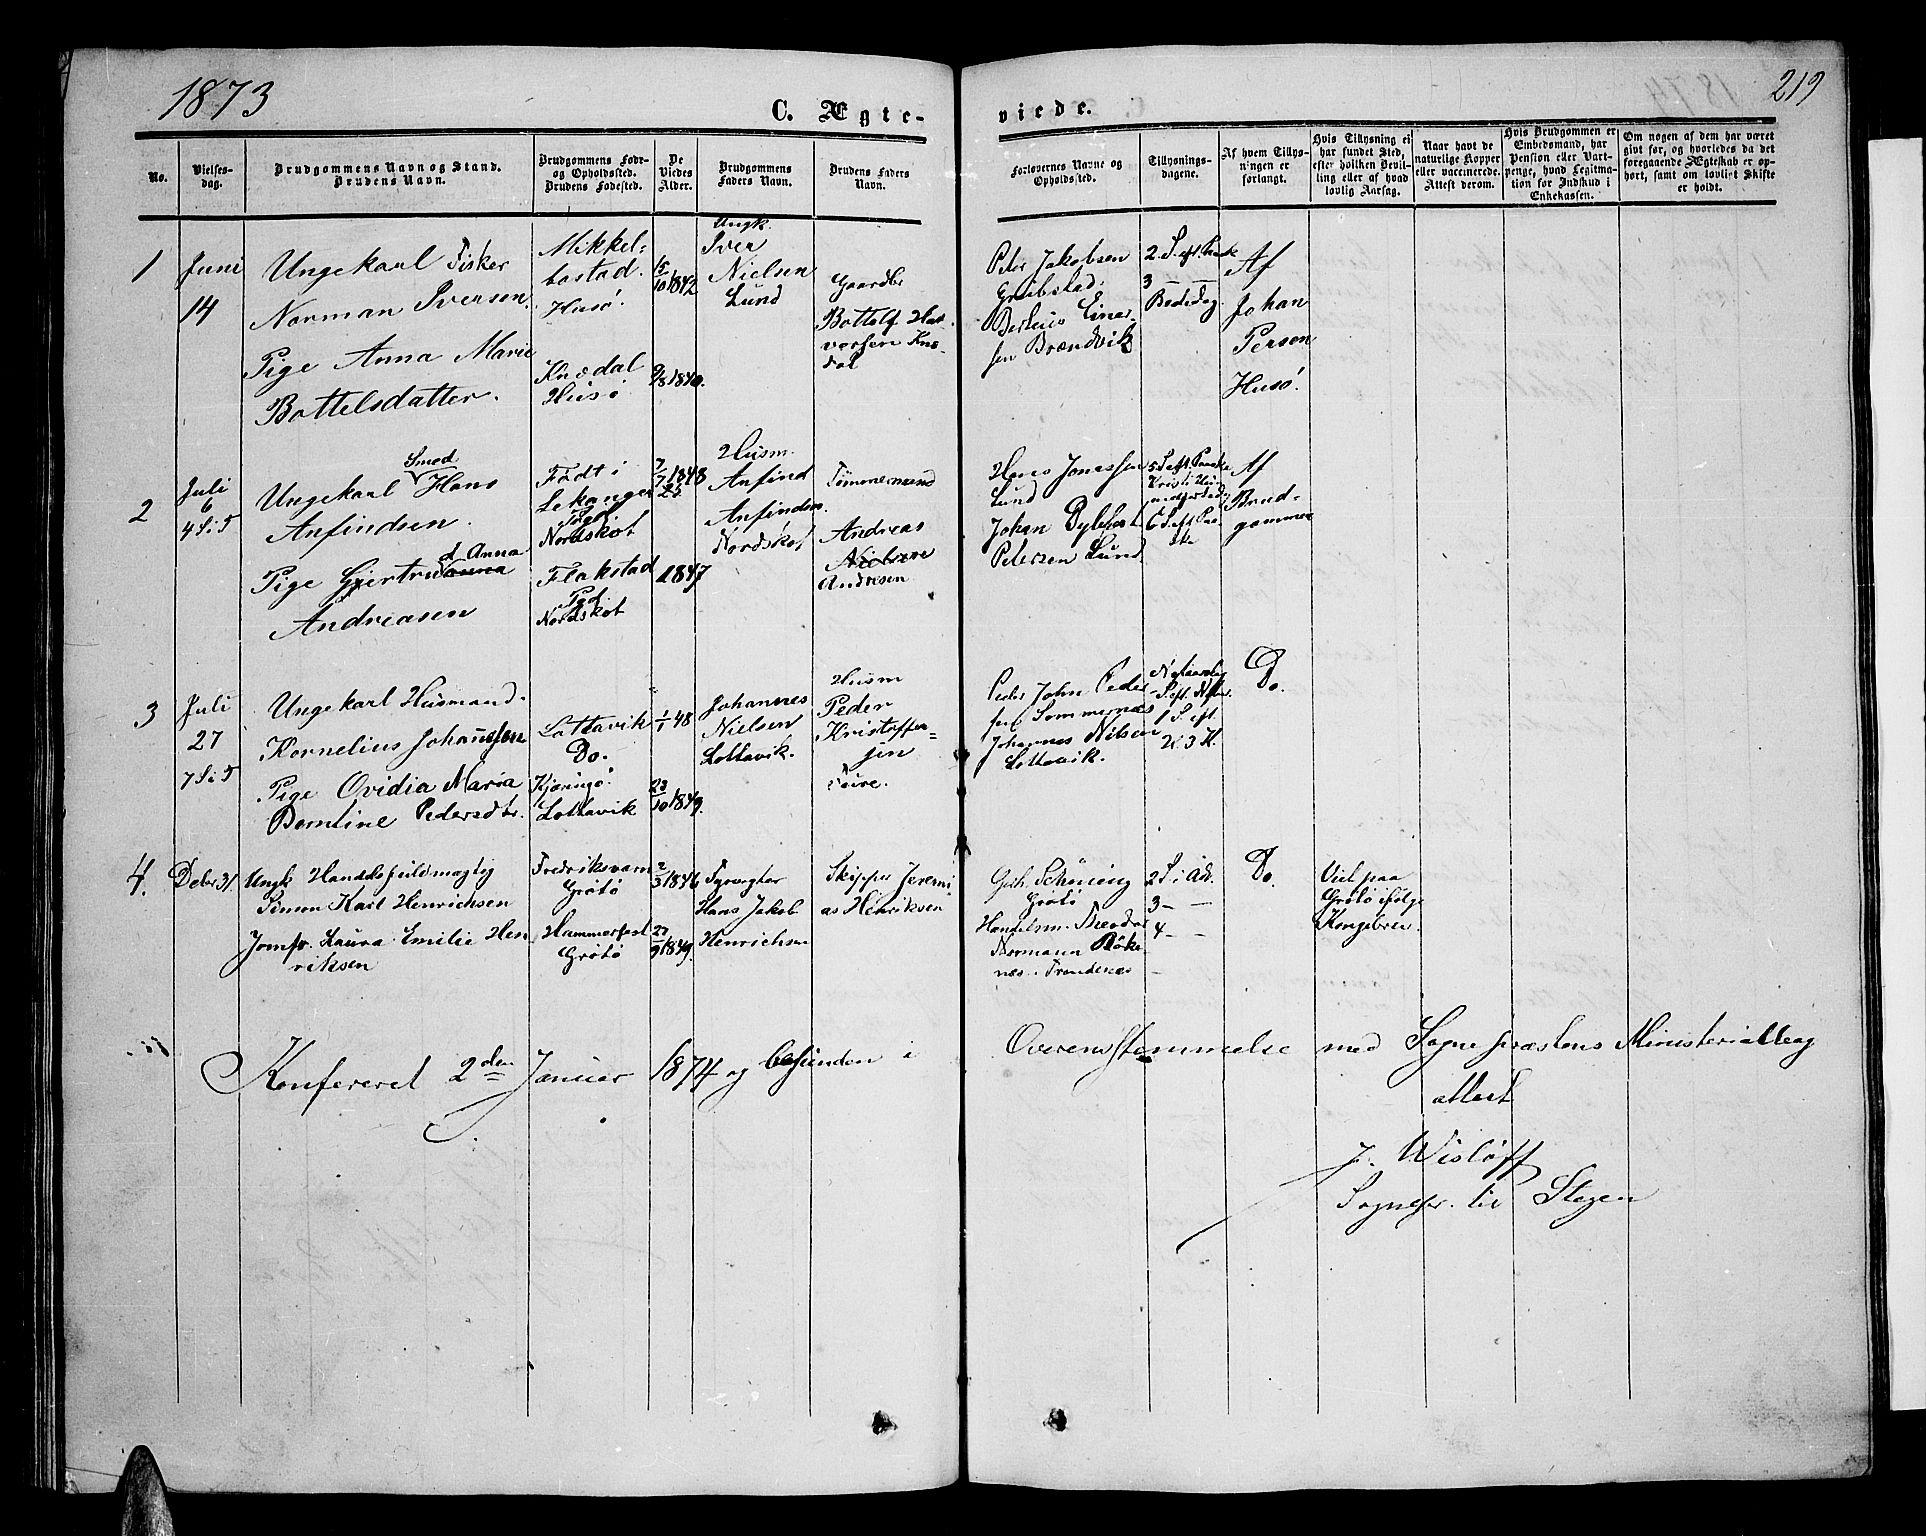 1873
219
C. Ægte-
viede.
No.
Vielses-
dag.
Brudgommens Navn og Stand.
Brudens Navn.
Brudgommens Føde-
og Opholdssted.
Brudens Fødested.
De
Viedes
Alder.
Brudgommens
Faders Navn.
Brudens Faders
Navn.
Forlovernes Navne og
Opholdssted.
Tillysnings-
dagene.
Af hvem Tillys-
ningen er
forlangt.
Hvis Tillysning ei
har fundet Sted,
efter hvilken Bevil-
ling eller af hvad
lovlig Aarsag.
Naar havt de
naturlige Kopper
eller vaccinerede.
Attest derom.
Hvis Brudgommen er
Embedsmand, har
Pension eller Vart-
penge, hvad Legitima-
tion for Indskud i
Enkekassen.
Om nogen af dem har været
givt før, og hvorledes da det
foregaaende Ægteskab er op-
hørt, samt om lovligt Skifte
er holdt.
1
Juni
14
Ungekarl Fisker
Norman Iversen.
Pige Anna Marie
Bottelsdatter.
Mikkel-
bostad.
Husö.
Knædal
Husö
15/10 1842
9/8 1840.
Ungk.
Iver
Nielsen
Lund
Gaardbr
Bottolf Hal-
vorsen Knæ-
dal
Peter Jakobsen
Grøbstad.
Berteus Einar-
sen Brændvik
2 S. eft. Paask
3 —
Bededag
Af
Johan
Person
Husö.
2
Juli
6
4 S i 5
Ungekarl Smed Hans
Anfindsen.
Pige Gjertrud Anna
Andreasen
Født i
Lekanger
Pgd
Nordskot
Flakstad
Pgd
Nordskot
1848
1847
Husm.
Anfind
Anfindsen.
Nordskot
Tømmermand
Andreas
Andresen
Hans Jonassen
Lund
Johan
Petersen Lund
5 S. eft. Paaske
6 S. eft. Paa-
ske
Af
Brud-
gommen
3
Juli
27
7 S i 5
Ungekarl Husmand.
Kornelius Johannesen
Pige Ovidia Maria
Berntine Pedersdtr.
Lottavik
Do.
Kjøringö.
Lottavik
1/1 48
23/10 1849.
Johannes
Nielsen
Lottavik.
Husm
Peder
Kristoffer-
sen
Peder John Peder
sen Sommernæs
Johannes Nilsen
Lottavik.
Nytaarsdag
S. eft. Nytaar.
1 S. eft.
H. 3 K.
Do.
4.
Debr 31.
Ungk Handelsfuldmægtig
Simon Karl Henrichsen
Jomfr. Laura Emilie Hen
riksen
Fredriksvarn
Grøtö
Hammerfest
Grøtö
2/3 1846
27/9 1849.
Fyrvogter
Hans Jakob
Henrichsen
Skipper Jeremi
as Henriksen
Gerh. Schöning
Grøtö
Handelsm. Theodor
Normann Röke-
næs. Trondenæs
2 S. i Adv.
3 — —
4 — —
Do.
Viet paa
Grøtö ifølge
Kongebrev.
Konfereret 2den Januar 1874 og befunden i
Overensstemmelse med Sognepræstens Ministerialbog
attest
J. Wisløff
Sognepr. til Stegen